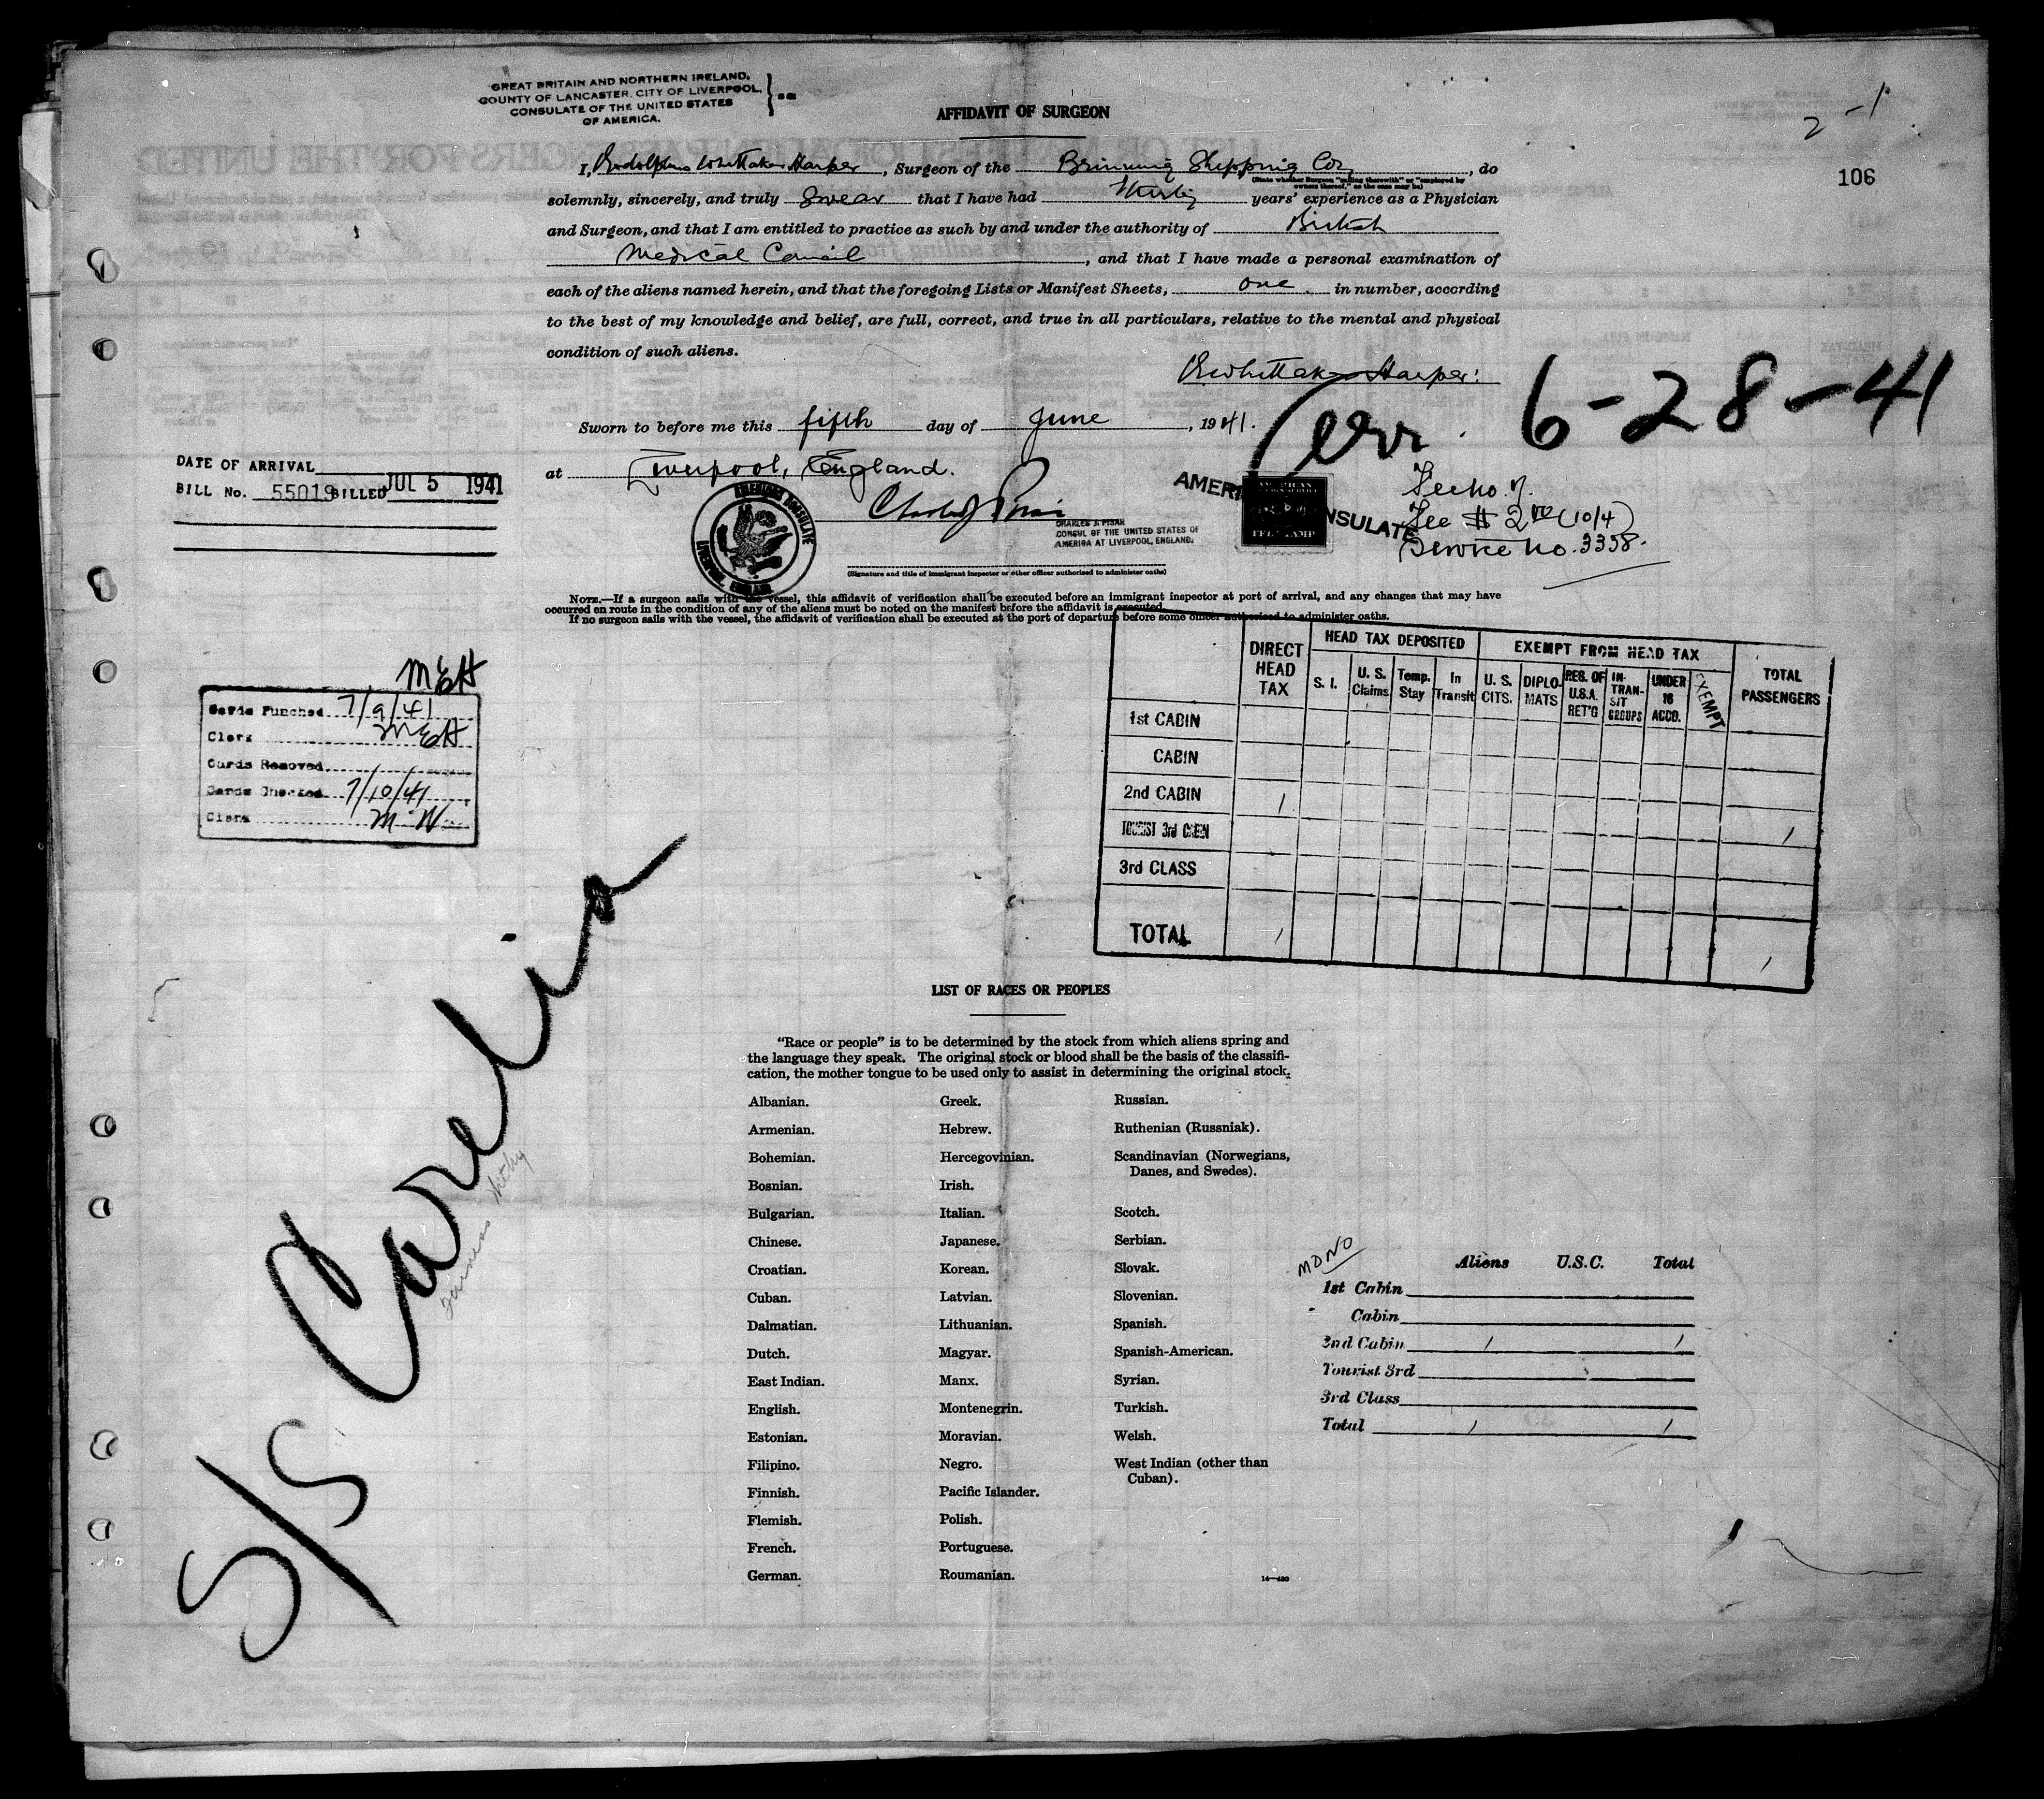 GREAT BRITAIN AND NORTHERN IRELAND,
COUNTY OF LANCASTER, CITY OF LIVERPOOL,
CONSULATE OF THE UNITED STATES
OF AMERICA.
AFFIDAVIT OF SURGEON
2 - 1
106
I, Rodolphus Whittaker Harper, Surgeon of the Shipping Co, do
(State whether Surgeon "sailing therewith" or "employed by
owners thereof," as the case may be)
solemnly, sincerely, and truly Swear that I have had thirty years' experience as a Physician
and Surgeon, and that I am entitled to practice as such by and under the authority of British
Medical Council, and that I have made a personal examination of
each of the aliens named herein, and that the foregoing Lists or Manifest Sheets, one in number, according
to the best of my knowledge and belief, are full, correct, and true in all particulars, relative to the mental and physical
condition of such aliens.
R Whittaker Harper
Sworn to before me this fifth day of June, 1941.
Arr. 6-28-41
at Liverpool, England.
DATE OF ARRIVAL
BILL No. 55019 BILLED JUL 5 1941
AMERICAN CONSULATE
LIVERPOOL, ENGLAND
CHARLES J. PISAR
CONSUL OF THE UNITED STATES OF
AMERICA AT LIVERPOOL, ENGLAND.
AMERICAN CONSULATE
Fee # 2 00 (10/4)
Service No. 3358.
(Signature and title of immigrant inspector or other officer authorized to administer oaths)
NOTE.—If a surgeon sails with the vessel, this affidavit of verification shall be executed before an immigrant inspector at port of arrival, and any changes that may have
occurred en route in the condition of any of the aliens must be noted on the manifest before the affidavit is executed.
If no surgeon sails with the vessel, the affidavit of verification shall be executed at the port of departure before some officer authorized to administer oaths.
DIRECT HEAD TAX HEAD TAX DEPOSITED EXEMPT FROM HEAD TAX TOTAL PASSENGERS
S. I. U. S. Claims Temp. Stay In Transit U. S. CITS. DIPLO-MATS RES. OF U.S.A. RET'G IN-TRAN-SIT GROUPS UNDER 16 ACCO. EXEMPT
1st CABIN
CABIN
2nd CABIN 1 1
TOURIST 3rd CABIN
3rd CLASS
TOTAL 1 1
MEH
Cards Punched 7/9/41
Clerk MEH
Cards Removed
Cards Checked 7/10/41
Clerk M W
S/S Carelia
Furness Withy
LIST OF RACES OR PEOPLES
"Race or people" is to be determined by the stock from which aliens spring and
the language they speak. The original stock or blood shall be the basis of the classifi-
cation, the mother tongue to be used only to assist in determining the original stock.
Albanian.
Armenian.
Bohemian.
Bosnian.
Bulgarian.
Chinese.
Croatian.
Cuban.
Dalmatian.
Dutch.
East Indian.
English.
Estonian.
Filipino.
Finnish.
Flemish.
French.
German.
Greek.
Hebrew.
Hercegovinian.
Irish.
Italian.
Japanese.
Korean.
Latvian.
Lithuanian.
Magyar.
Manx.
Montenegrin.
Moravian.
Negro.
Pacific Islander.
Polish.
Portuguese.
Roumanian.
Russian.
Ruthenian (Russniak).
Scandinavian (Norwegians,
Danes, and Swedes).
Scotch.
Serbian.
Slovak.
Slovenian.
Spanish.
Spanish-American.
Syrian.
Turkish.
Welsh.
West Indian (other than
Cuban).
14—430
MONO
Aliens U.S.C. Total
1st Cabin
Cabin
2nd Cabin 1 1
Tourist 3rd
3rd Class
Total 1 1